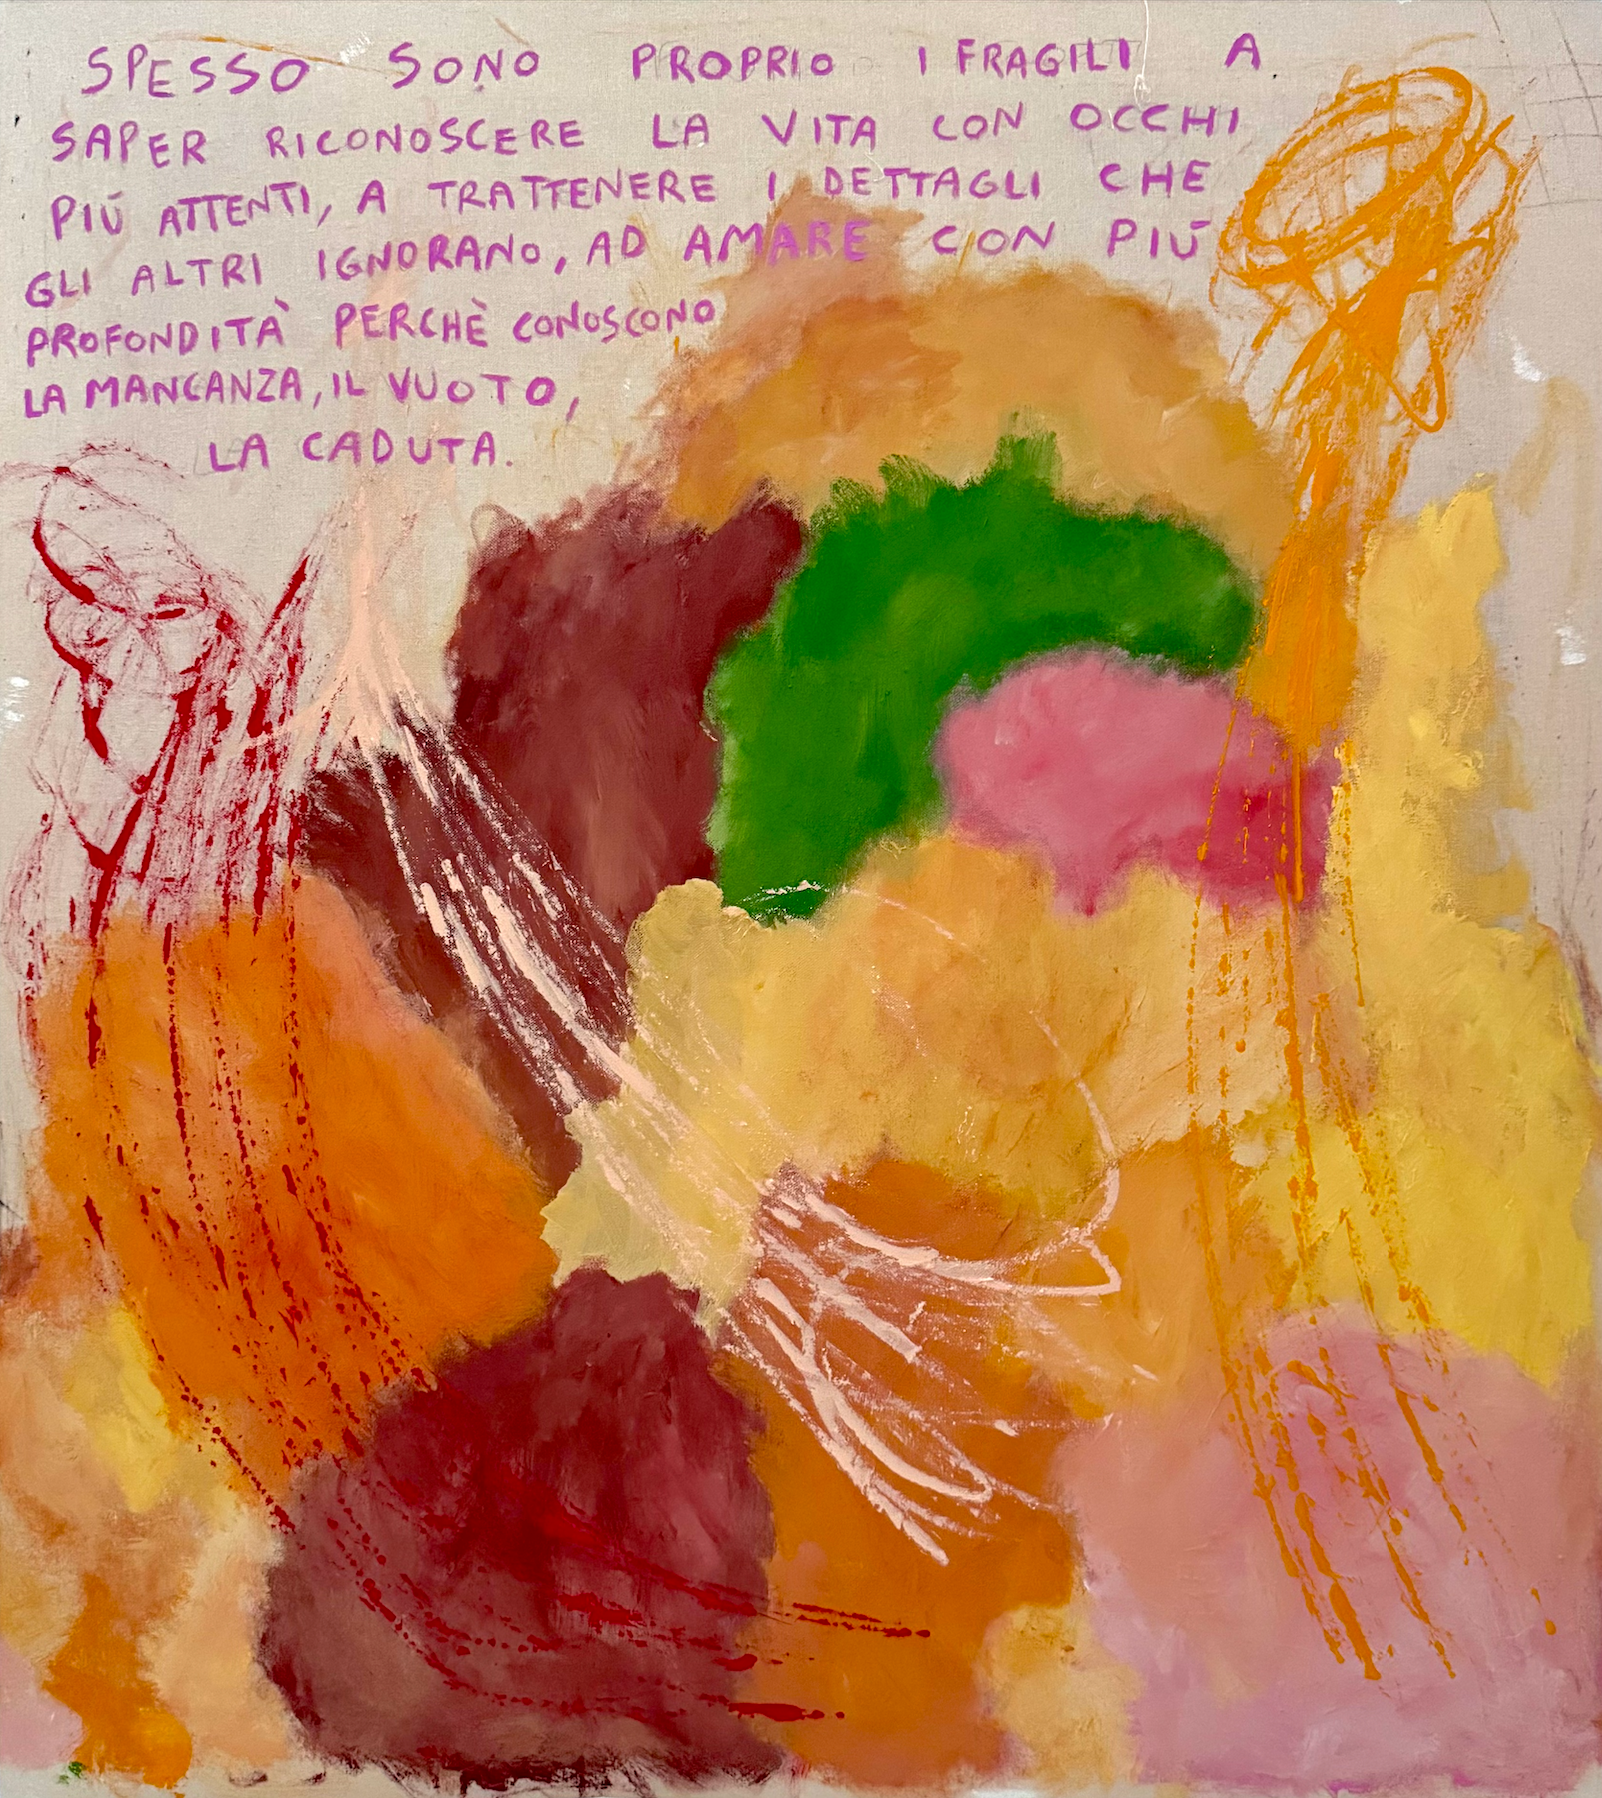 SPESSO SONO PROPRIO I FRAGILI A
SAPER RICONOSCERE LA VITA CON OCCHI
PIÚ ATTENTI, A TRATTENERE I DETTAGLI CHE
GLI ALTRI IGNORANO, AD AMARE CON PIÚ
PROFONDITÀ PERCHÈ CONOSCONO
LA MANCANZA, IL VUOTO,
LA CADUTA.